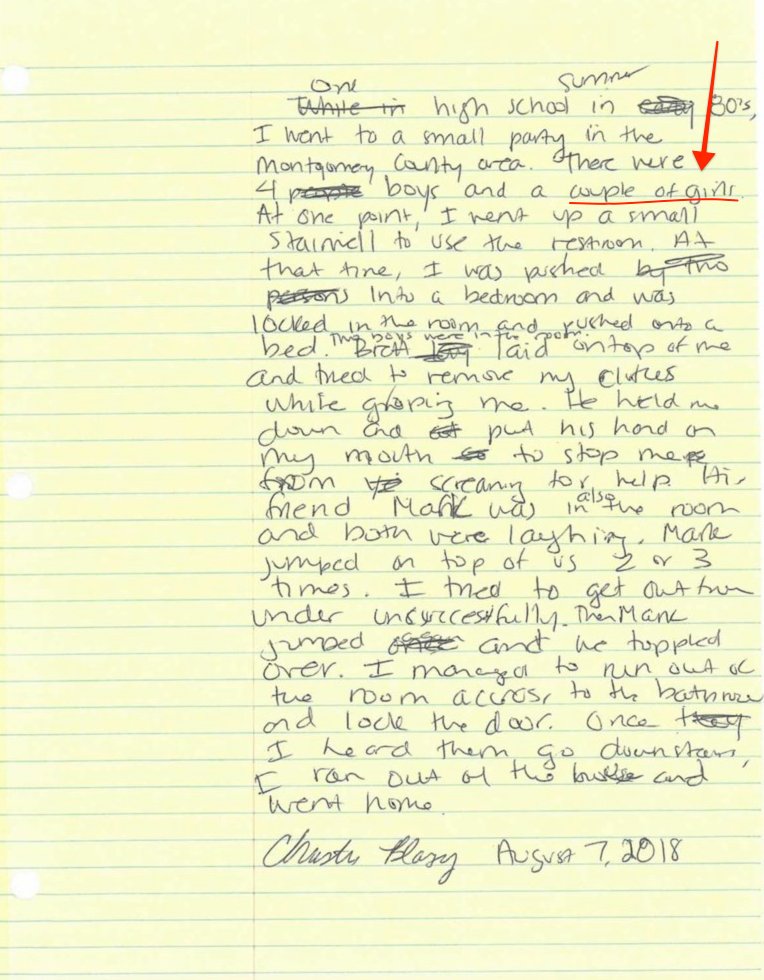 One summer
While in high school in early 80's,
I went to a small party in the
Montgomery County area. There were
4 people boys and a couple of girls.
At one point, I went up a small
stairwell to use the restroom. At
that time, I was pushed by two
persons into a bedroom and was
locked in the room and pushed onto a
Two boys were in the room.
bed. Brett laid on top of me
and tried to remove my clothes
while groping me. He held me
down and put his hand on
my mouth to stop me
from screaming for help. His
friend Mark was in the room
also
and both were laughing. Mark
jumped on top of us 2 or 3
times. I tried to get out from
under unsuccessfully. Then Mark
jumped once and we toppled
over. I managed to run out of
the room across to the bathroom
and lock the door. Once they
I heard them go downstairs,
I ran out of the house and
went home.
August 7, 2018